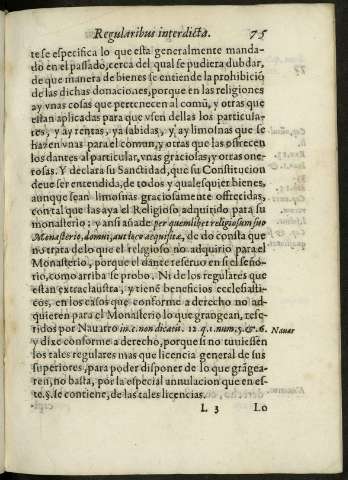 Regularibus interdicta. 75
te se especifica lo que esta generalmente manda-
do en el passado, cerca del qual se pudiera dubdar,
de que manera de bienes se entiende la prohibiciõ
de las dichas donaciones, porque en las religiones
ay vnas cosas que pertenecen al comũ, y otras que
estan aplicadas para que vsen dellas los particula-
res, y ay rentas, ya sabidas, y ay limosnas que se
hazen vnas para el comun, y otras que las offrecen
los dantes al particular, vnas graciosas, y otras one-
rosas. Y declara su Sanctidad, que su Constitucion
deue ser entendida, de todos y qualesquier bienes,
aunque sean limosnas graciosamente offrecidas,
con tal que las aya el Religioso adquirido para su
monasterio; y ansi añade per quemlibet religiosum suo
Monasterio, domui, aut loco acquisitæ, de do consta que
no trata de lo que el religioso no adquirio para el
Monasterio, porque el dante reseruo en si el seño-
rio, como arriba se probo. Ni de los regulares que
estan extraclaustra, y tiene beneficios ecclesiasti-
cos, en los casos que conforme a derecho no ad-
quieren para el Monasterio lo que grangean, refe-
ridos por Nauarro in c. non dicatis. 12. q. 1. num. 5. & 6. Nauar
y dixe conforme a derecho, porque si no tuuiessen
los tales regulares mas que licencia general de sus
superiores, para poder disponer de lo que grãgea-
ren, no basta, por la especial annulacion que en es-
te. §. se contiene, de las tales licencias.
L 3 Lo